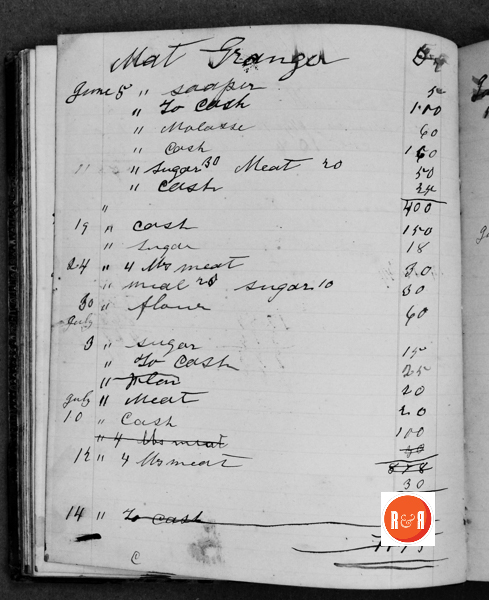 Mat Granger Dr
June 5 " soap 5
" To Cash 100
" Molasse 60
" Cash 160
11 " sugar 30 Meat 20 50
" Cash 25
" 400
19 " cash 150
" sugar 18
24 " 4 lbs meat 30
" meal 20 sugar 10 30
30 " flour 60
July
3 " sugar 15
" To Cash 25
" 20
July " Meat 20
10 " Cash 100
" 4 lbs meat
12 " 4 lbs meat 878
30
14 " To cash
R&A